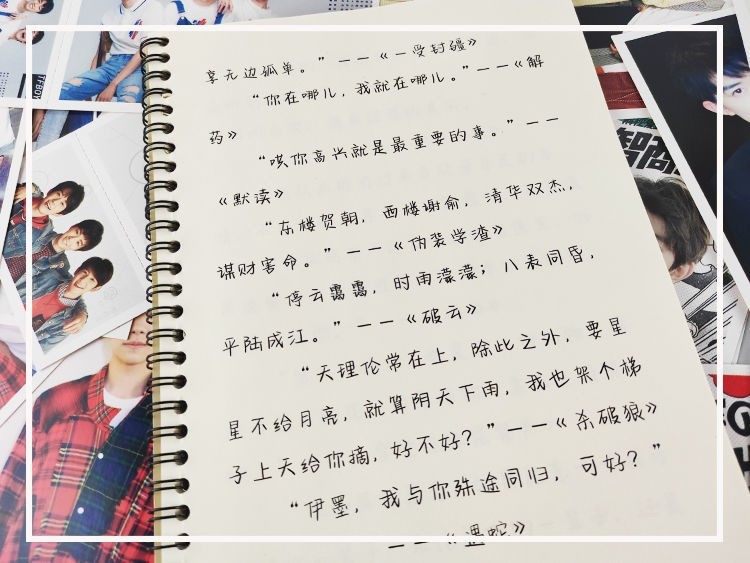 享无边孤单。”——《一受封疆》
“你在哪儿，我就在哪儿。”——《解
药》
“哄你高兴就是最重要的事。”——
《默读》
“东楼贺朝，西楼谢俞，清华双杰，
谋财害命。”——《伪装学渣》
“停云霭霭，时雨濛濛；八表同昏，
平陆成江。”——《破云》
“天理伦常在上，除此之外，要星
星不给月亮，就算阴天下雨，我也架个梯
子上天给你摘，好不好？”——《杀破狼》
“伊墨，我与你殊途同归，可好？”
——《遇蛇》
TFBOY
智商